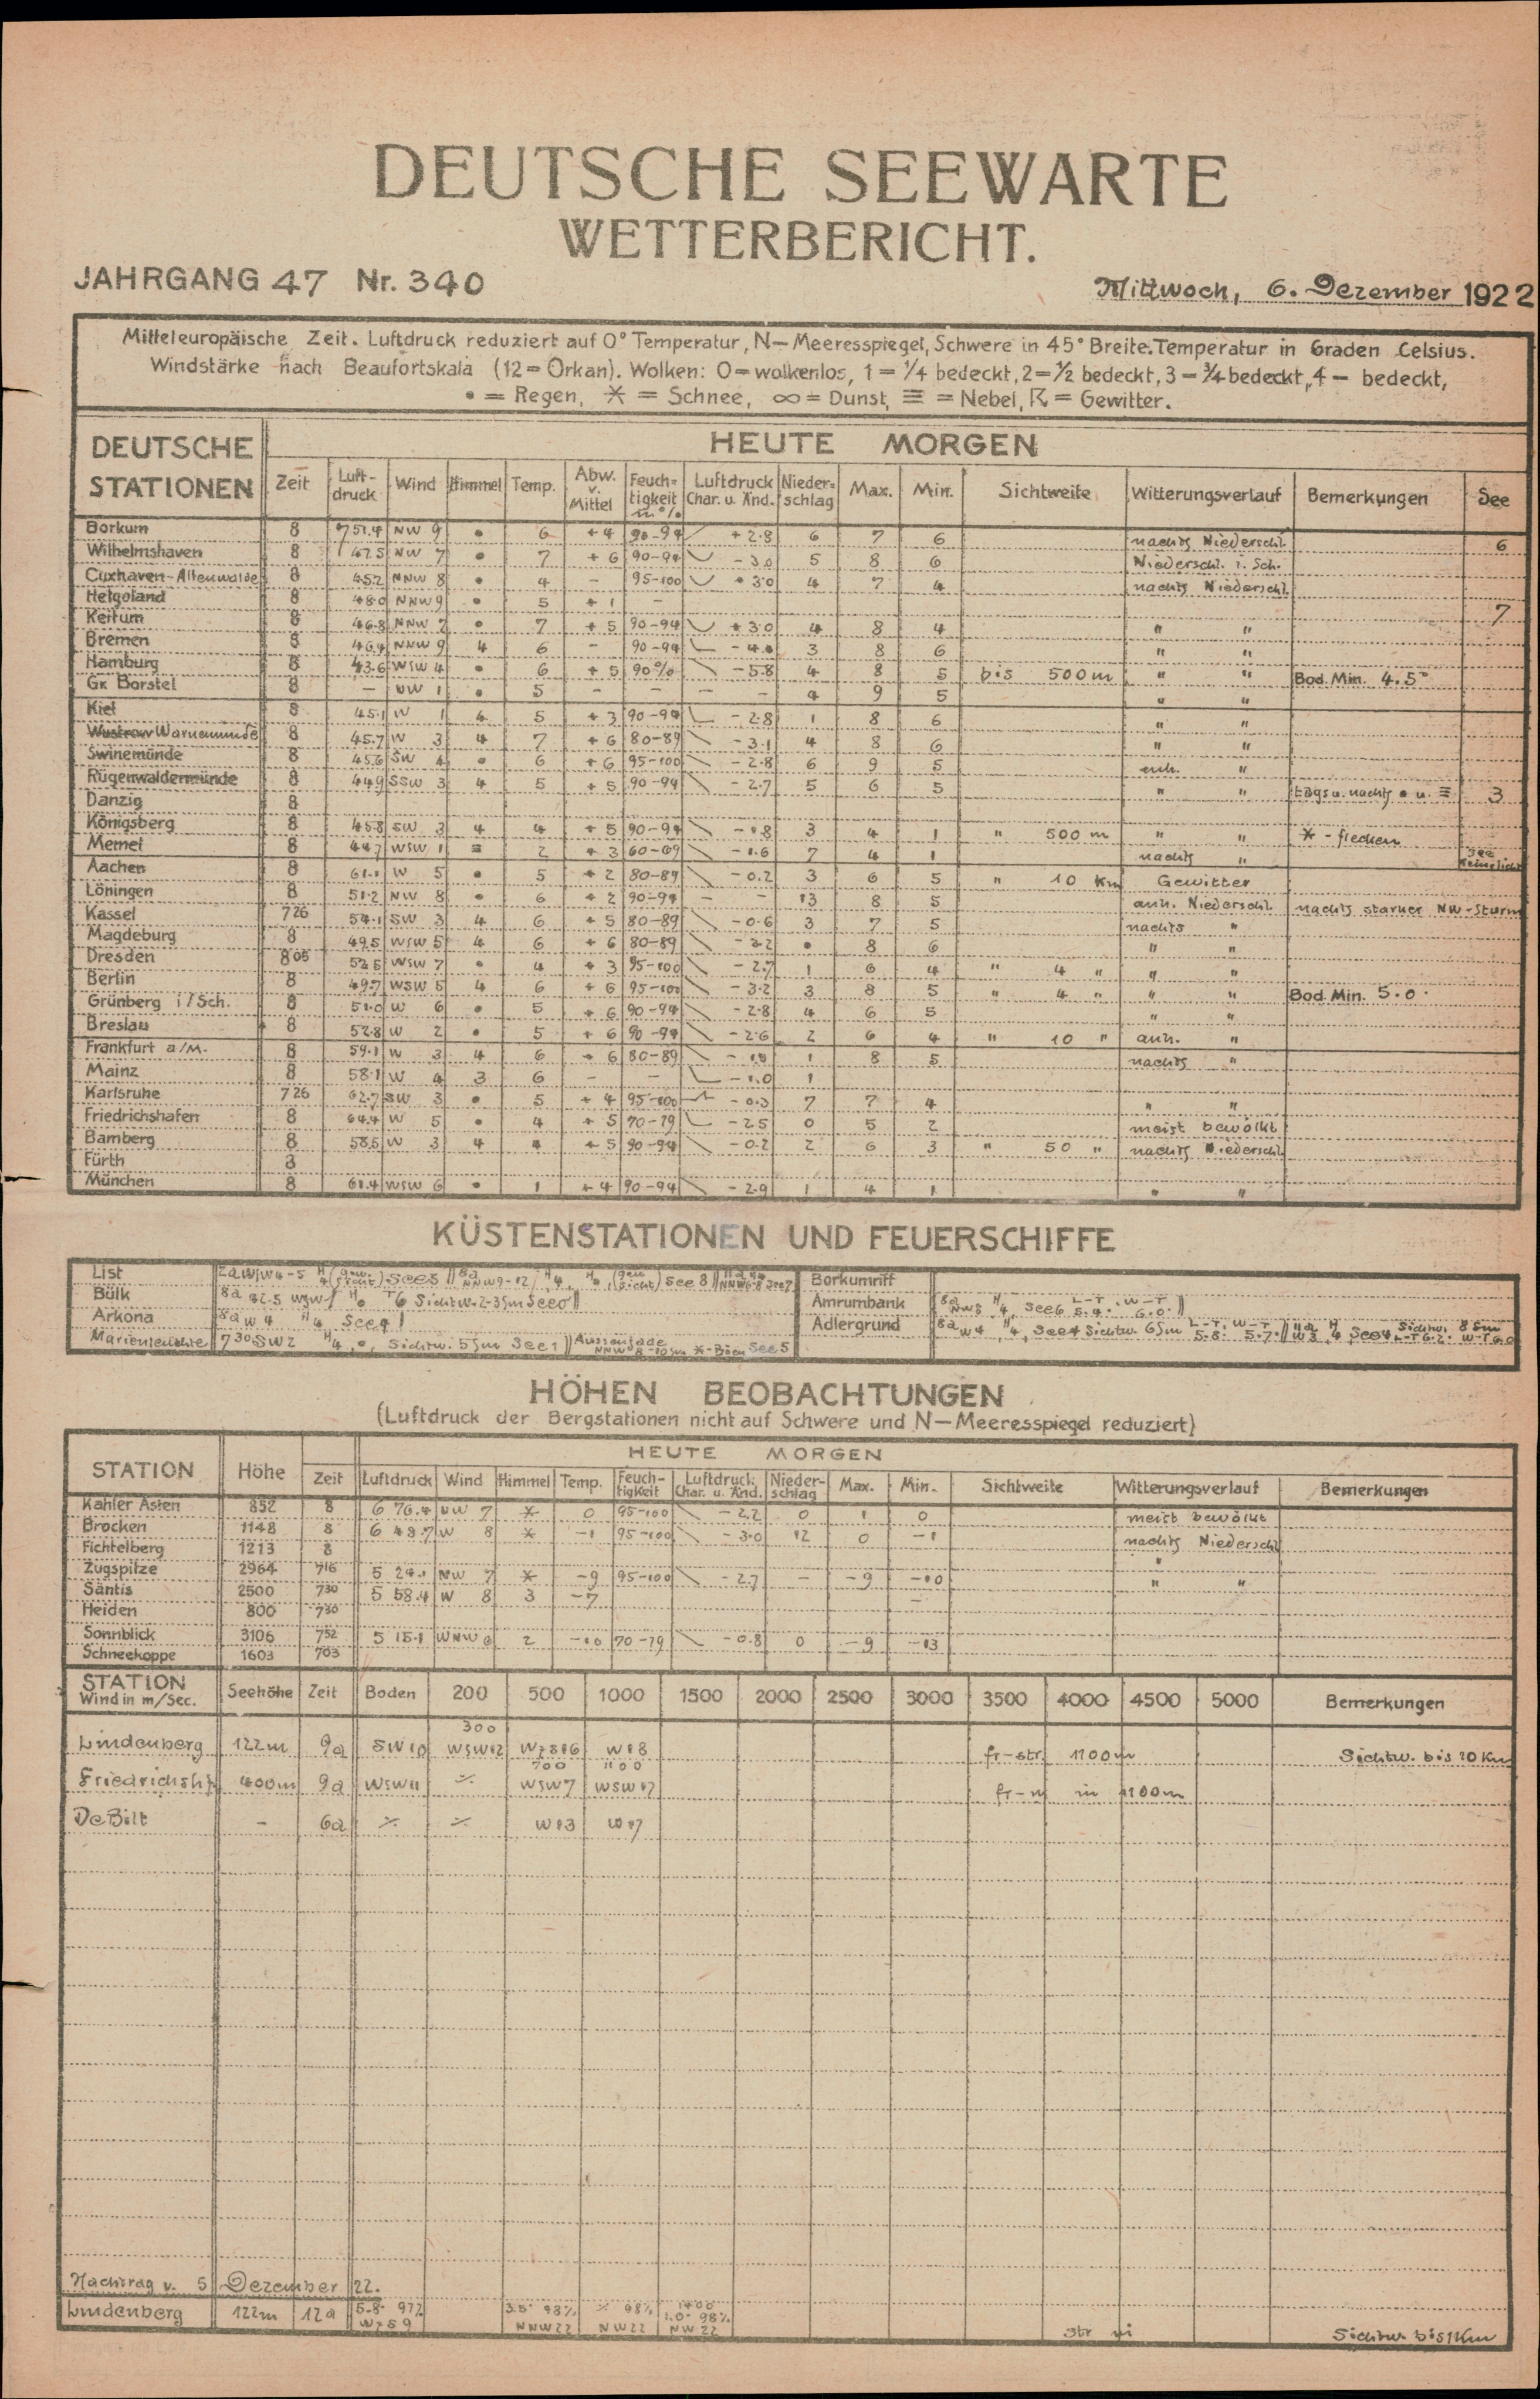 DEUTSCHE SEEWARTE
WETTERBERICHT.
JAHRGANG 47 Nr. 340 Mittwoch, 6. Dezember 1922
Mitteleuropäische Zeit. Luftdruck reduziert auf 0° Temperatur, N—Meeresspiegel, Schwere in 45° Breite. Temperatur in Graden Celsius.
Windstärke nach Beaufortskala (12 = Orkan). Wolken: 0 = wolkenlos, 1 = 1/4 bedeckt, 2 = 1/2 bedeckt, 3 = 3/4 bedeckt, 4 — bedeckt,
• = Regen, ✶ = Schnee, ∞ = Dunst, ≡ = Nebel, ☈ = Gewitter.
DEUTSCHE STATIONEN HEUTE MORGEN
Zeit Luft-druck Wind Himmel Temp. Abw. v. Mittel Feuch-tigkeit in % Luftdruck Char. u. Änd. Nieder-schlag Max. Min. Sichtweite Witterungsverlauf Bemerkungen See
Borkum 8 751.4 NW 9 • 6 +4 90-94 +2.8 6 7 6 nachts Niederschl. 6
Wilhelmshaven 8 47.5 NW 7 • 7 +6 90-94 -3.0 5 8 6 Niederschl. i. Sch.
Cuxhaven-Altenwalde 8 45.2 NNW 8 • 4 - 95-100 +3.0 4 7 4 nachts Niederschl.
Helgoland 8 48.0 NNW 9 • 5 +1 - 7
Keitum 8 46.8 NNW 7 • 7 +5 90-94 +3.0 4 8 4 " "
Bremen 8 46.4 NNW 9 4 6 - 90-94 3 8 6 " "
Hamburg 8 43.6 WSW 4 • 6 +5 90% -5.8 4 8 5 bis 500 m " " Bod. Min. 4.5°
Gr. Borstel 8 - NW 1 • 5 - - - - 4 9 5 " "
Kiel 8 45.1 W 1 4 5 +3 90-94 -2.8 1 8 6 " "
Wustrow Warnemünde 8 45.7 W 3 4 7 +6 80-89 -3.1 4 8 6 " "
Swinemünde 8 45.6 SW 4 • 6 +6 95-100 -2.8 6 9 5 anh. "
Rügenwaldermünde 8 44.9 SSW 3 4 5 +5 90-94 -2.7 5 6 5 " " tags u. nachts • u. ≡ 3
Danzig 8
Königsberg 8 45.8 SW 3 4 4 +5 90-94 3 4 1 " 500 m " " ✶-flecken
Memel 8 44.7 WSW 1 ≡ 2 +3 60-69 -1.6 7 4 1 nachts "
Aachen 8 61.1 W 5 • 5 +2 80-89 -0.2 3 6 5 " 10 Km Gewitter
Löningen 8 51.2 NW 8 • 6 +2 90-94 - - 13 8 5 anh. Niederschl. nachts starker NW-Sturm
Kassel 7 26 54.1 SW 3 4 6 +5 80-89 -0.6 3 7 5 nachts "
Magdeburg 8 49.5 WSW 5 4 6 +6 80-89 • 8 6 " "
Dresden 8 05 52.5 WSW 7 • 4 +3 95-100 -2.7 1 6 4 " 4 " " "
Berlin 8 49.7 WSW 5 4 6 +6 95-100 -3.2 3 8 5 " 4 " " " Bod. Min. 5.0°
Grünberg i/Sch. 8 51.0 W 6 • 5 +6 90-94 -2.8 4 6 5 " "
Breslau 8 52.8 W 2 • 5 +6 90-94 -2.6 2 6 4 " 10 " anh. "
Frankfurt a/M. 8 59.1 W 3 4 6 +6 80-89 1 8 5 nachts "
Mainz 8 58.1 W 4 3 6 - - -1.0 1
Karlsruhe 7 26 62.7 SW 3 • 5 +4 95-100 -0.3 7 7 4 " "
Friedrichshafen 8 64.4 W 5 • 4 +5 70-79 -2.5 0 5 2 meist bewölkt
Bamberg 8 58.5 W 3 4 4 +5 90-94 -0.2 2 6 3 " 50 " nachts Niederschl.
Fürth 8
München 8 61.4 WSW 6 • 1 +4 90-94 -2.9 1 4 1 " "
KÜSTENSTATIONEN UND FEUERSCHIFFE
List See 5 See 8
Bülk 8a T6 Sichtw. 2-3 sm See 0
Arkona 8a W 4 H4 See 4
Marienleuchte 7 30 SW 2 H4, •, Sichtw. 5 sm See 1 Aussenjade ✶-Böen See 5
Borkumriff
Amrumbank 8a NW 8 H4, See 6 L-T. 5.4° W-T 6.0°
Adlergrund 8a W 4 H4, See 4 Sichtw. 6 sm L-T. 5.8° W-T 5.7° 11a W 3 H4 See 4 Sichtw. 8 sm L-T 6.2° W-T 6.0
HÖHEN BEOBACHTUNGEN
(Luftdruck der Bergstationen nicht auf Schwere und N—Meeresspiegel reduziert)
STATION Höhe HEUTE MORGEN
Zeit Luftdruck Wind Himmel Temp. Feuch-tigkeit Luftdruck Char. u. Änd. Nieder-schlag Max. Min. Sichtweite Witterungsverlauf Bemerkungen
Kahler Asten 852 8 6 76.4 NW 7 ✶ 0 95-100 -2.2 0 1 0 meist bewölkt
Brocken 1148 8 6 48.7 W 8 ✶ -1 95-100 -3.0 12 0 -1 nachts Niederschl.
Fichtelberg 1213 8 "
Zugspitze 2964 7 16 5 24.1 NW 7 ✶ -9 95-100 -2.7 - -9 -10 " "
Säntis 2500 7 30 5 58.4 W 8 3 -7 -
Heiden 800 7 30
Sonnblick 3106 7 52 5 15.1 WNW 2 -10 70-79 -0.8 0 -9 -13
Schneekoppe 1603 7 03
STATION Wind in m/Sec. Seehöhe Zeit Boden 200 500 1000 1500 2000 2500 3000 3500 4000 4500 5000 Bemerkungen
300
Lindenberg 122m 9a SW 10 WSW 12 WzS 16 W 18 fr-str. 1100m Sichtw. bis 20 Km
700 1100
Friedrichshf. 400m 9a WSW 11 ⁒ WSW 7 WSW 17 fr-w in 1100m
De Bilt - 6a ⁒ ⁒ W 13 W 17
Nachtrag v. 5 Dezember 22.
Lindenberg 122m 12a 5.8° 97% WzS 9 3.5° 98% NNW 22 ⁒ 98% NW 22 1400 1.0° 98% NW 22 str Sichtw. bis 11 Km